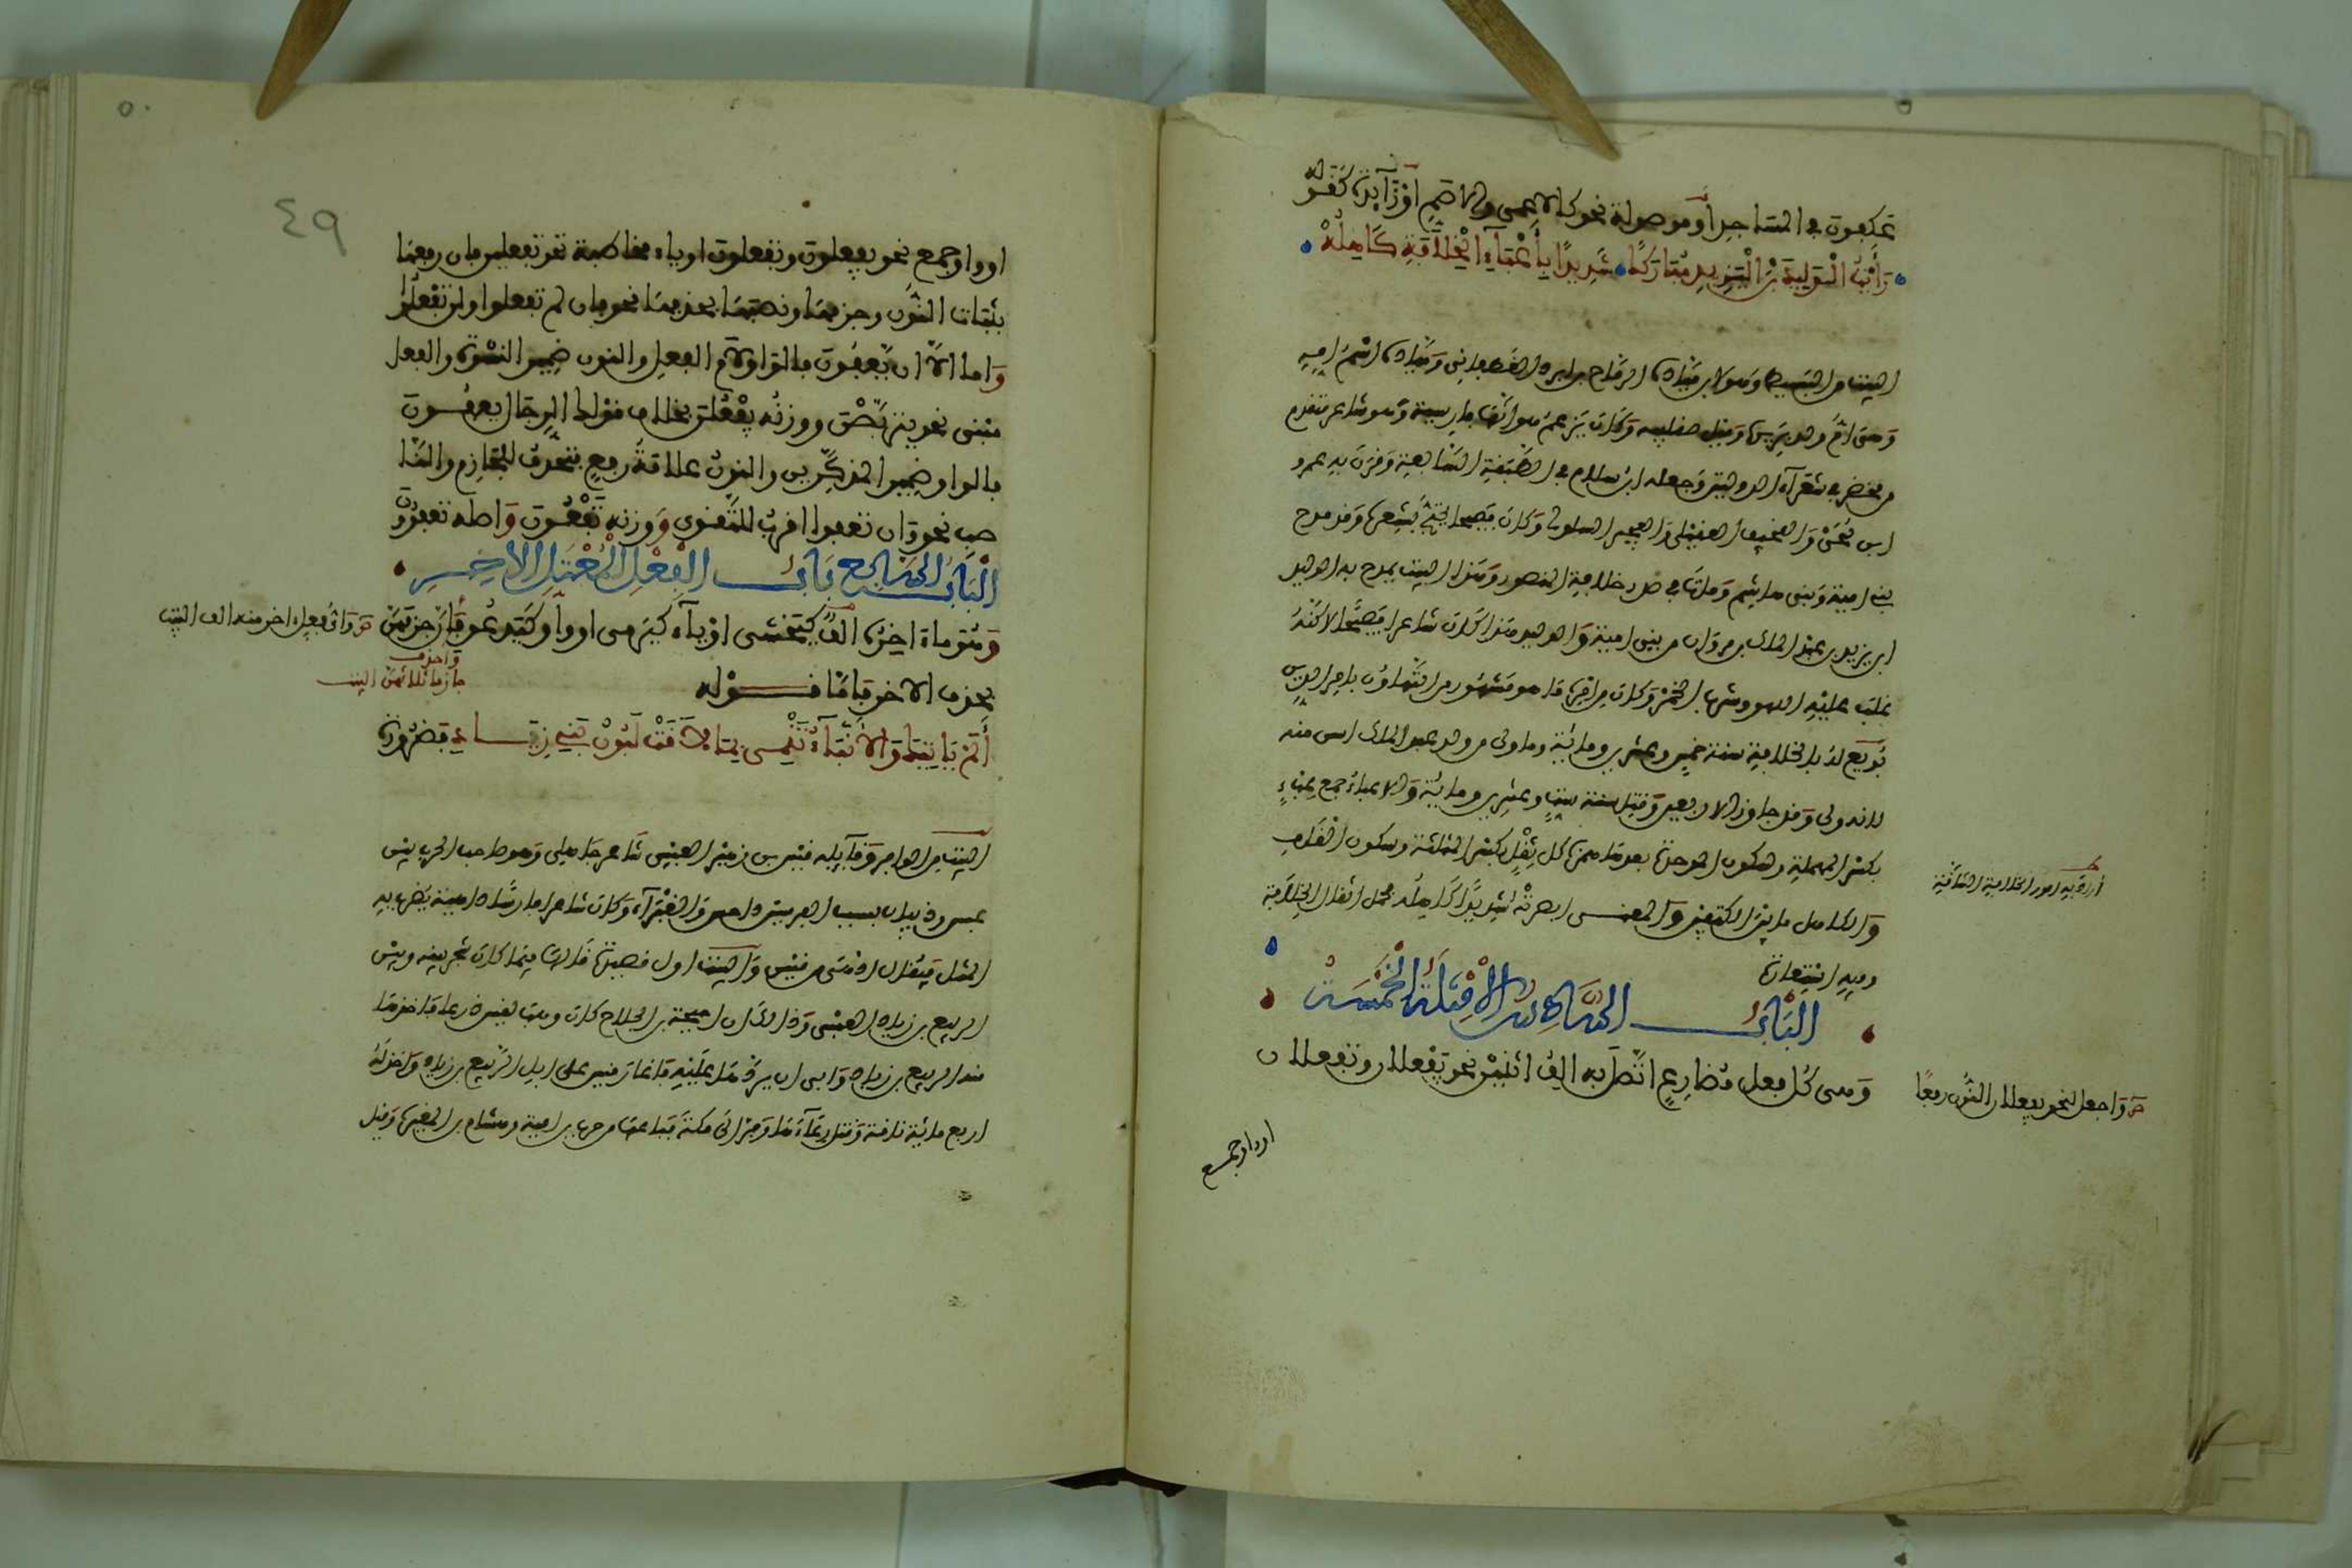 عاكفون في المساجد أو موصولة نحو كالاعمى والاصم أو زائدة كقوله
رأيت الوليد بن اليزيد مباركا شديدا بأعباء الخلافة كاهله
البيت من الطويل وهو لابن ميادة الرماح بن ابرد الغطفاني وميادة اسم امه
وهي ام ولد بربرية وقيل صقلبية وكان يزعم هو انها فارسية وهو شاعر متقدم
من مخضرمي شعراء الدولتين وجعله ابن سلام في الطبقة السابعة وقرن به عمرو
ابن لحى والعجيف العقيلي والعجير السلولي وكان فصيحا يحتج بشعره وقد مدح
بني امية وبني هاشم ومات في صدر خلافة المنصور وهذا البيت يمدح به الوليد
ابن يزيد بن عبد الملك بن مروان من بني امية والوليد هذا كان شاعرا فصيحا لاكنه
غلب عليه اللهو وشرب الخمر وكان من امره ما هو مشهور من التهاون بامر الدين
بويع له بالخلافة سنة خمس وعشرين ومائة وما ولي من ولد عبد الملك اسن منه
لانه ولي وقد جاوز الاربعين وقتل سنة ست وعشرين ومائة والاعباء جمع عبء
بكسر المهملة وسكون الموحدة بعدها همزة كل ثقل بكسر المثلثة وسكون القاف
والكاهل ما بين الكتفين والمعنى ابصرته شديدا كاهله تحمل اثقال الخلافة
أراد به امور الخلافة الشاقة
وفيه استعارة
الباب السادس الامثلة الخمسة
وهي كل فعل مضارع اتصل به الف اثنين نحو يفعلان وتفعلان
ص واجعل لنحو يفعلان النون رفعا
او واو جمع
او واو جمع نحو يفعلون وتفعلون او ياء مخاطبة نحو تفعلين فان رفعها
بثبات النون وجزمها ونصبها بحذفها نحو فان لم تفعلوا ولن تفعلوا
واما الا ان يعفون فالواو لام الفعل والنون ضمير النسوة والفعل
مبني نحو يتربصن ووزنه يفعلن بخلاف قولك الرجال يعفون
فالواو ضمير المذكرين والنون علامة رفع فتحذف للجازم والنا
صب نحو وان تعفوا اقرب للتقوى ووزنه تفعون واصله تعفوون
الباب السابع باب الفعل المعتل الاخير
وهو ما اخره الف كيخشى او ياء كيرمي او واو كيدعو فان جزمهن
ص واي فعل اخر منه الف البيت
واحذف
جازما ثلاثهن البيت
بحذف الاخر فاما قوله
ألم يأتيك والأنباء تنمي بما لاقت لبون بني زياد فضرورة
البيت من الوافر وقائله قيس بن زهير العبسي شاعر جاهلي وهو صاحب الحرب بين
عبس وذبيان بسبب الفرسين داحس والغبراء وكان شاعرا مارسا داهية يضرب به
المثل فيقال ادهى من قيس والبيت اول قصيدة قالها فيما كان شجر بينه وبين
الربيع بن زياد العبسي وذالك ان احيحة بن الجلاح كان وهب لقيس درعا فاخذها
منه الربيع بن زياد وابى ان يردها عليه فاغار قيس على ابل الربيع بن زياد واخذ له
اربع مائة ناقة وقتل رعاءها وفر الى مكة فباعها من حرب بن امية وهشام بن المغيرة وقيل
٤٩
٥٠